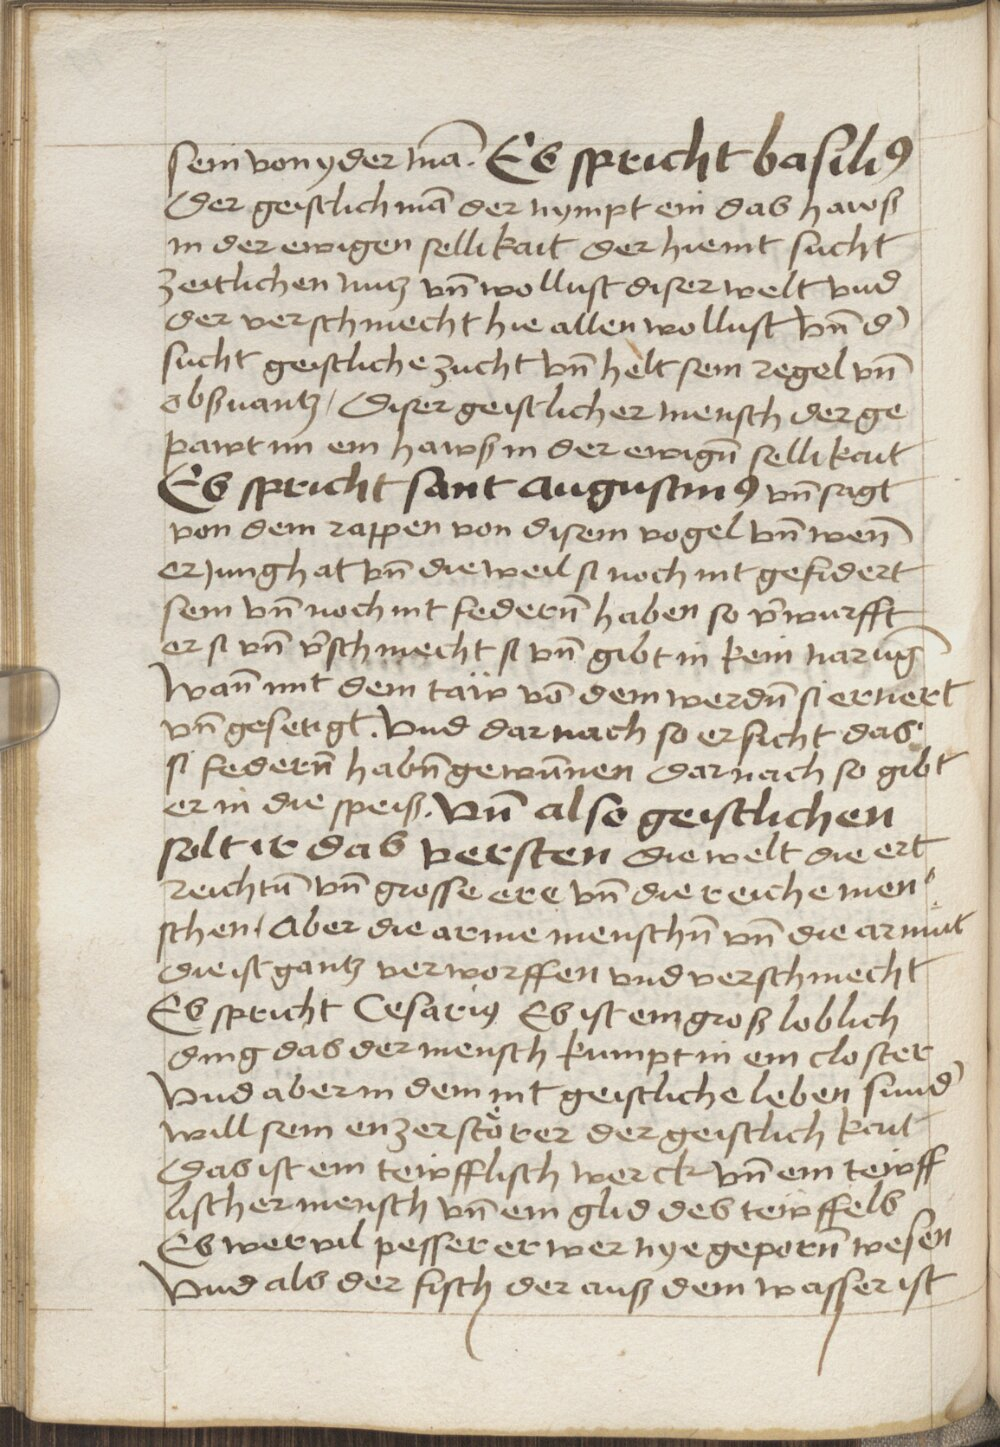 sein von yder mā. Es spricht basiliꝰ
Der geistlich mā der nympt ein das hawß
in der ewigen sellikait der hie nit sucht
zeitlichen nutz vn̄ wollust diser welt vnd
der verschmecht hie allen wollust vn̄ d'
sucht geistliche zucht vn̄ helt sein regel vn̄
obßuantz / Diser geistlicher mensch der ge
pawt im ein hawß in der ewign̄ sellikait
Es spricht sant augustinꝰ vn̄ sagt
von dem rappen von disem vogel vn̄ wen̄
er jung hat vn̄ die weil si noch nit gefidert
sein vn̄ noch nit federn̄ haben so v̄wurfft
er si vn̄ v̄schmecht si vn̄ gibt in kein narūg
Wan̄ mit dem taẅ vō dem werdn̄ si ernert
vn̄ gesetigt. Vnd darnach so er sicht das
si federn̄ habn̄ gewūnen darnach so gibt
er in die speiß. Vn̄ also geistlichen
solt ir das versten die welt die ert
reichtū vn̄ grosse ere vn̄ die reiche men
schen / Aber die arme menschn̄ vn̄ die armut
die ist gantz verworffen vnd verschmecht
Es spricht Cesariꝰ Es ist ein groß loblich
ding das der mensch kumpt in ein closter
Vnd aber in dem nit geistliche leben sund'
will sein en zerstörer der geistlichkait
Das ist ein teẅfflisch werck vn̄ ein teẅff
lischer mensch vn̄ ein glid des teẅffels
Es wer vil pesser er wer nye geporn̄ wesen
Vnd als der fisch der auß dem wasser ist